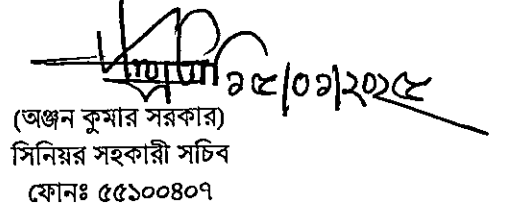 ১৫/০১/২০২৫
(অঞ্জন কুমার সরকার)
সিনিয়র সহকারী সচিব
ফোনঃ ৫৫১০০৪০৭